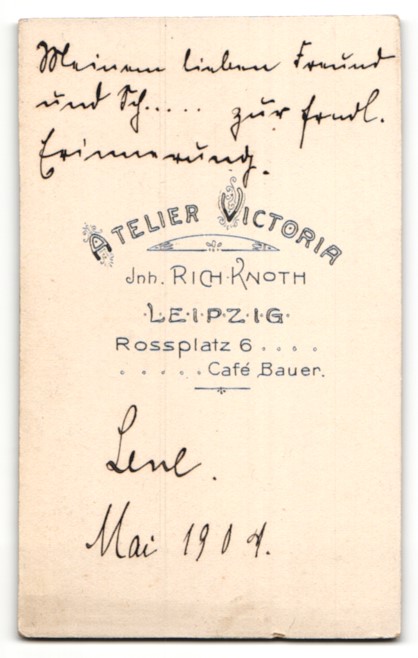 Meinem lieben Freund
und Sch..... zur frndl.
Erinnerung.
ATELIER VICTORIA
Jnh. RICH. KNOTH
·L·E·I·P·Z·I·G·
Rossplatz 6 . . . .
. . . . . Café Bauer.
Lene.
Mai 1904.